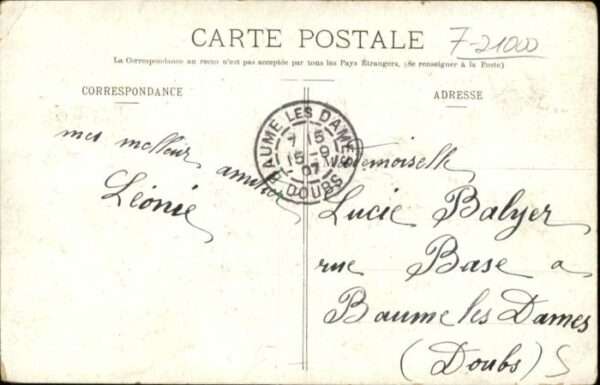 CARTE POSTALE
7-21000
La Correspondance au recto n'est pas acceptée par tous les Pays Étrangers. (Se renseigner à la Poste)
CORRESPONDANCE
ADRESSE
mes meilleur amitiés
Léonie
BAUME LES DAMES
7 15
15 -9
07
DOUBS
Mademoiselle
Lucie Balyer
rue Base a
Baume les Dames
(Doubs)